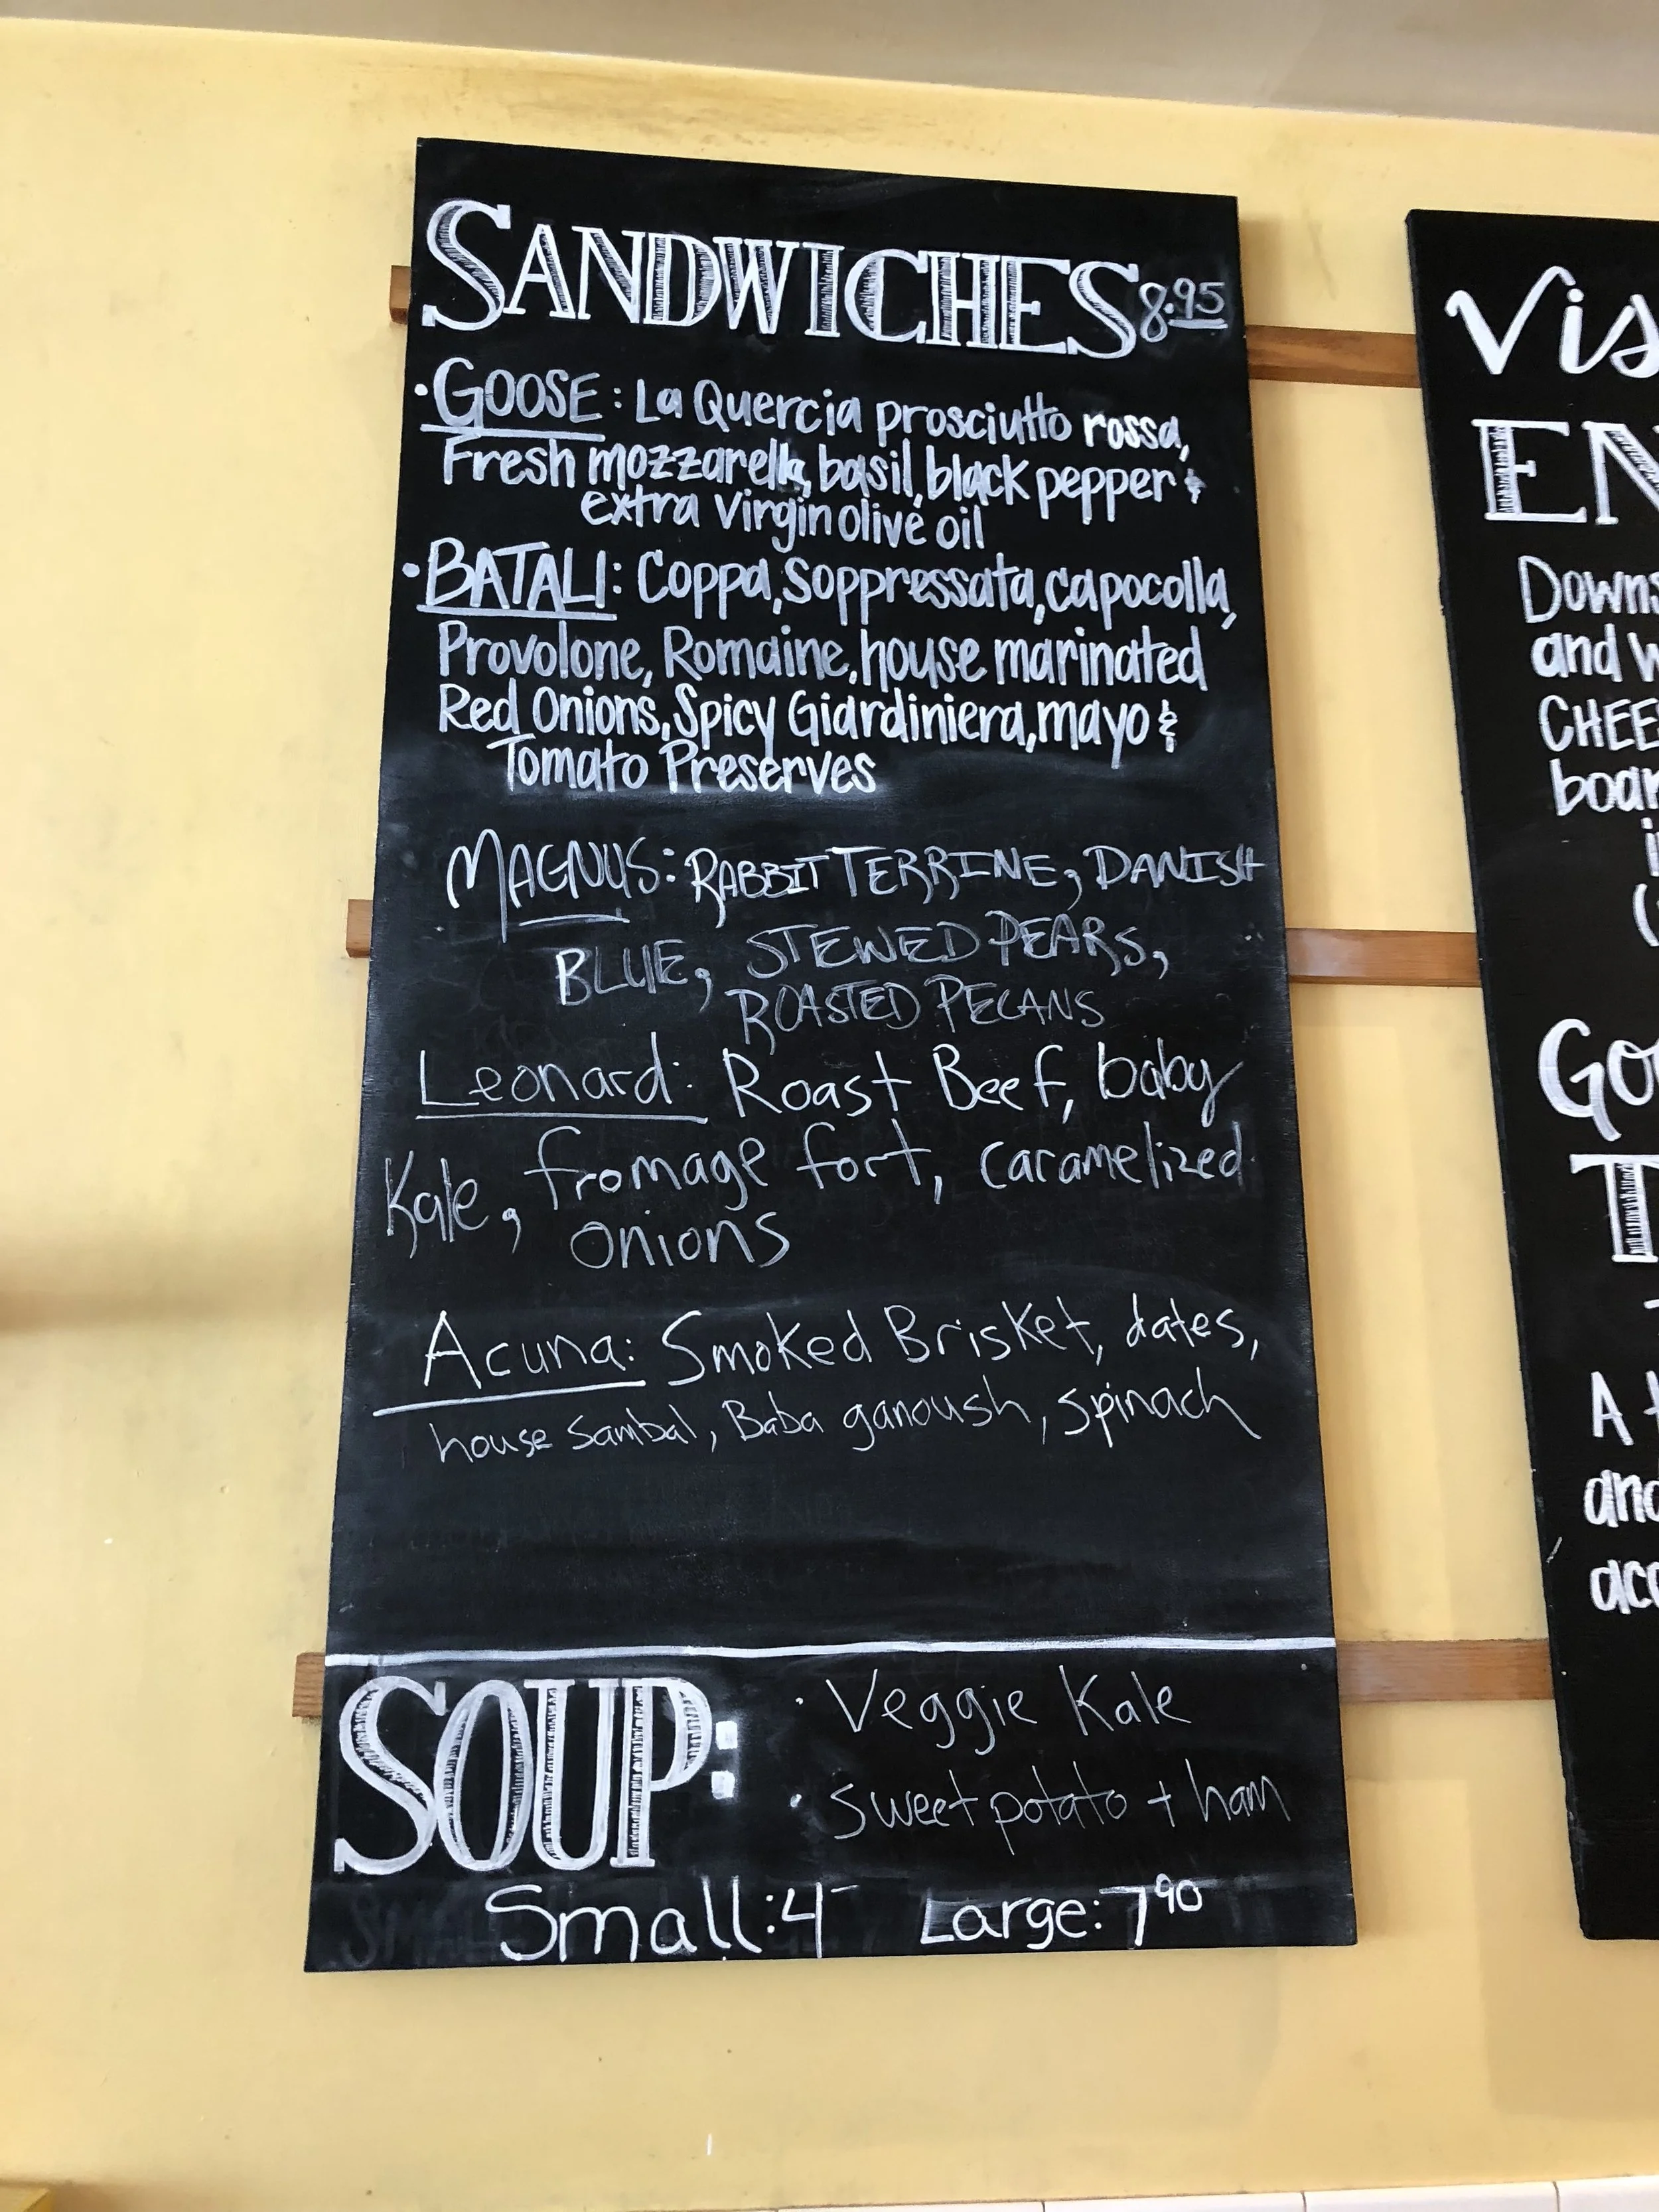 SANDWICHES 8.95
• GOOSE: La Quercia prosciutto rossa,
Fresh mozzarella, basil, black pepper &
extra virgin olive oil
• BATALI: Coppa, Soppressata, capocolla,
Provolone, Romaine, house marinated
Red Onions, Spicy Giardiniera, mayo &
Tomato Preserves
MAGNUS: RABBIT TERRINE, DANISH
BLUE, STEWED PEARS,
ROASTED PECANS
Leonard: Roast Beef, baby
Kale, fromage fort, caramelized
onions
Acuna: Smoked Brisket, dates,
house Sambal, Baba ganoush, spinach
SOUP:
• Veggie Kale
• Sweet potato + ham
Small: 4- Large: 7 90
Vis
EN
Downs
and w
CHEE
boar
i
(
Go
T
A t
and
acc